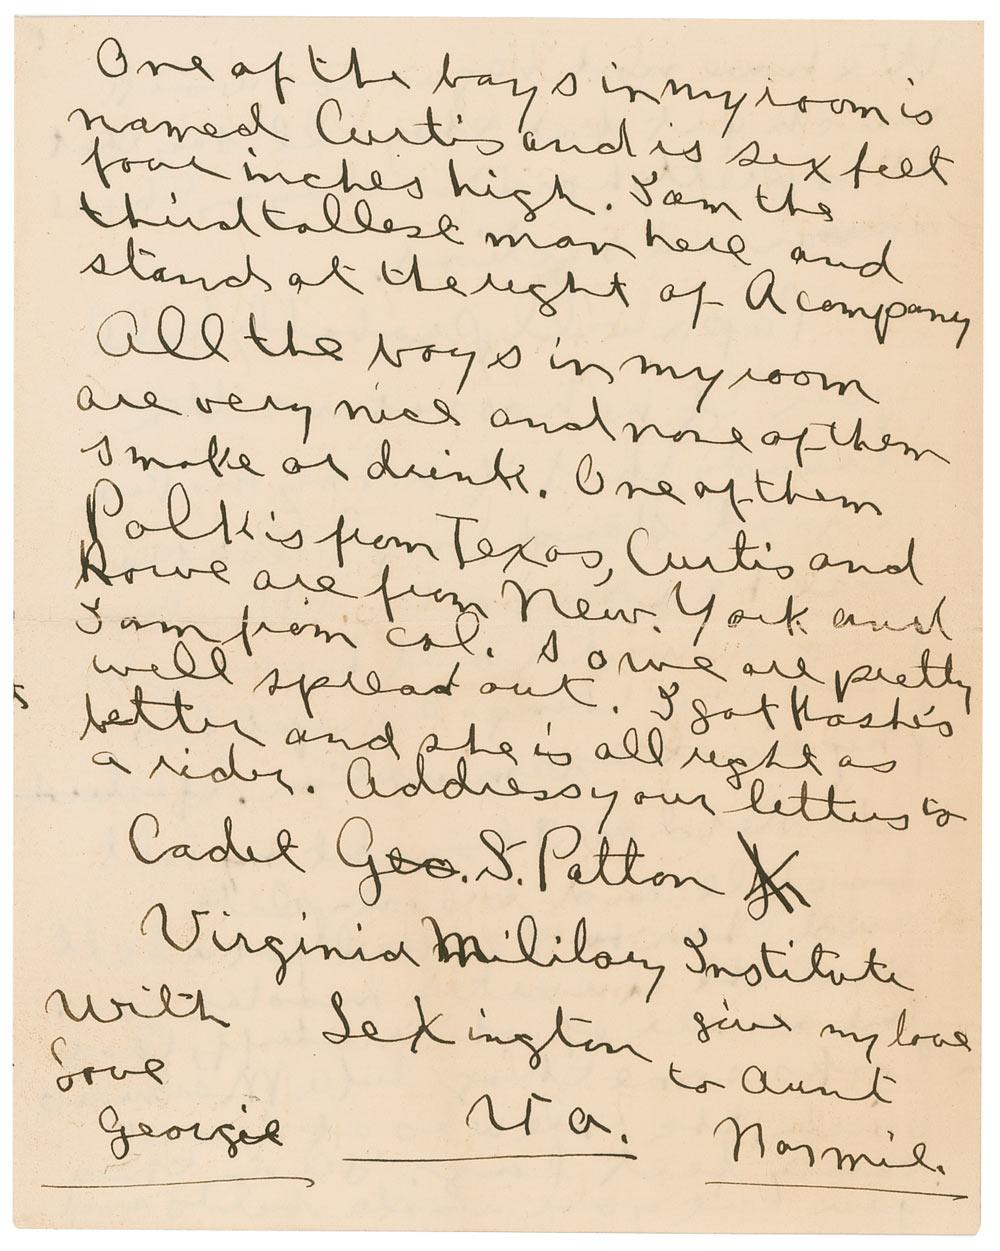 One of the boys in my room is
named Curtis and is sex feet
four inches high. I am the
third tallest man here and
stand at the right of A company
All the boys in my room
are very nice and none of them
smoke or drink. One of them
Polk is from Texas, Curtis and
Rowe are from New York and
I am from cal. so we are pretty
well spread out. I got
better and she is all right as
a rider. Address your letters to
Cadet Geo. S. Patton Jr
Virginia Military Institute
Lexington
Va.
With
love
Georgie
give my love
to Aunt
Nannie.